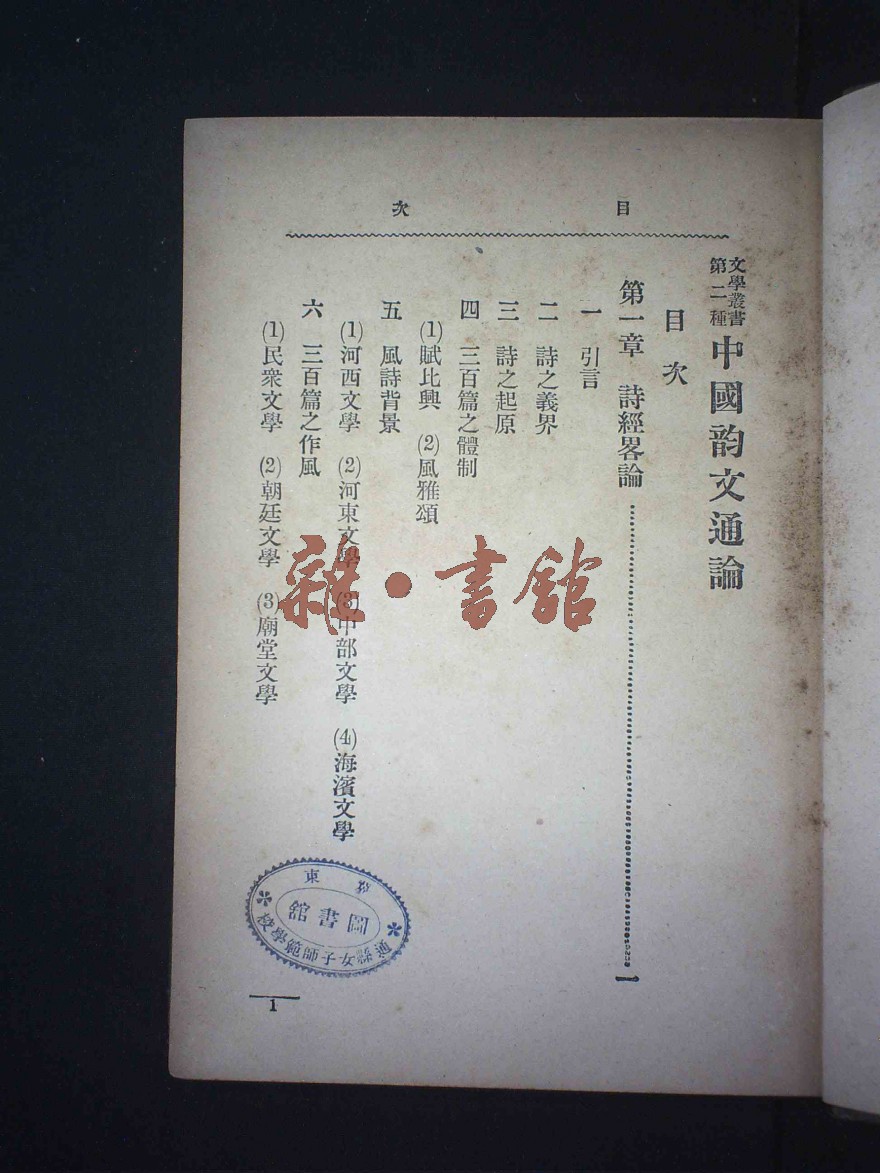 目次
文學叢書
第二種
中國韵文通論
目次
第一章 詩經畧論 一
一 引言
二 詩之義界
三 詩之起原
四 三百篇之體制
(1)賦比興 (2)風雅頌
五 風詩背景
(1)河西文學 (2)河東文學 (3)中部文學 (4)海濱文學
六 三百篇之作風
(1)民衆文學 (2)朝廷文學 (3)廟堂文學
雜·書館
東
圖書館
通縣女子師範學校
1